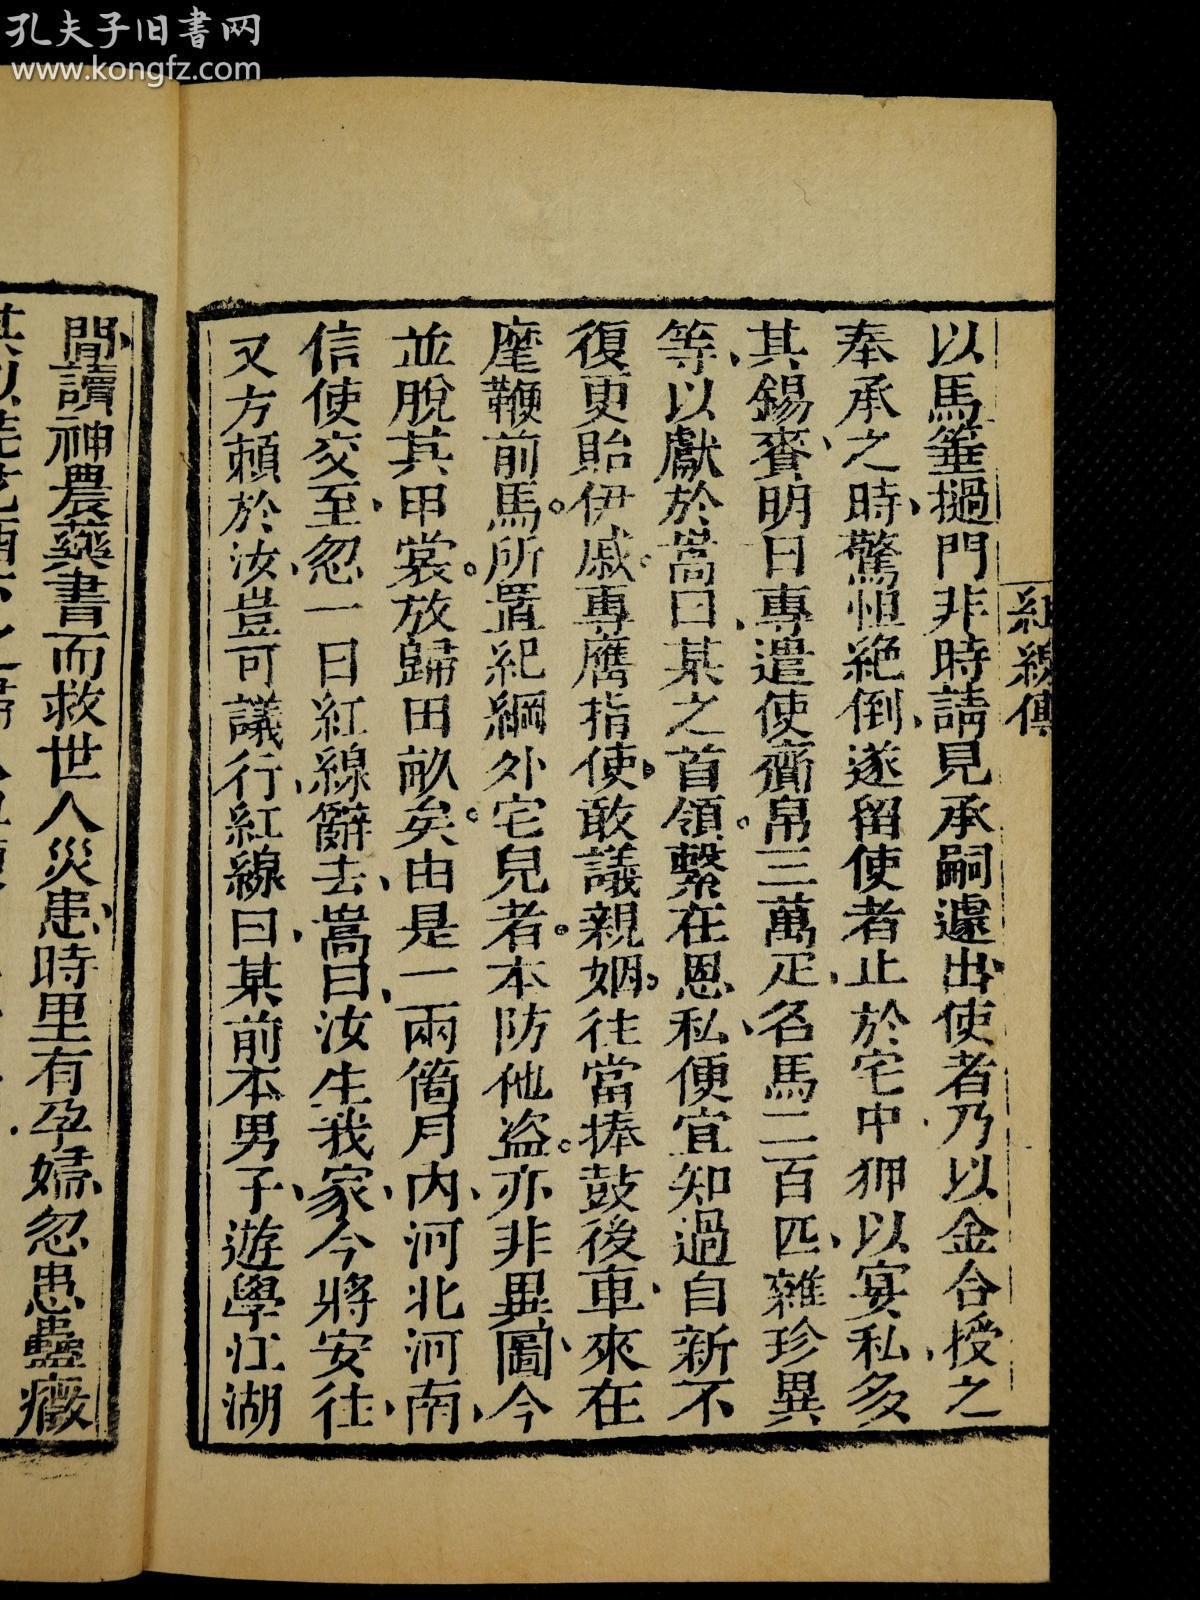 孔夫子旧書网
www.kongfz.com
紅線傳
以馬箠撾門非時請見承嗣遽出使者乃以金合授之
奉承之時驚怛絕倒遂留使者止於宅中狎以宴私多
其錫賚明日專遣使齎帛三萬疋名馬二百匹雜珍異
等以獻於嵩曰某之首領繫在恩私便宜知過自新不
復更貽伊戚專膺指使敢議親姻往當捧轂後車來在
麾鞭前馬所置紀綱外宅兒者本防他盜亦非異圖今
並脫其甲裳放歸田畝矣由是一兩箇月內河北河南
信使交至忽一日紅線辭去嵩曰汝生我家今將安往
又方賴於汝豈可議行紅線曰某前本男子遊學江湖
間讀神農藥書而救世人災患時里有孕婦忽患蠱癥